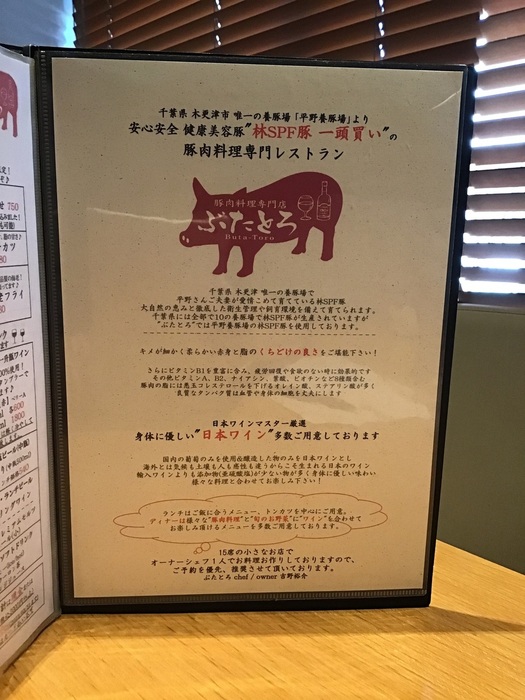 千葉県 木更津市 唯一の養豚場「平野養豚場」より
安心安全 健康美容豚"林SPF豚 一頭買い"の
豚肉料理専門レストラン
豚肉料理専門店
ぶたとろ
Buta-Toro
千葉県 木更津 唯一の養豚場で
平野さんご夫妻が愛情こめて育てている林SPF豚
大自然の恵みと徹底した衛生管理や飼育環境を備えて育てられます。
千葉県には全部で10の養豚場で林SPF豚が生産されていますが
"ぶたとろ"では平野養豚場の林SPF豚を使用しております。
キメが細かく柔らかい赤身と脂のくちどけの良さをご堪能下さい!
さらにビタミンB1を豊富に含み、疲労回復や食欲のない時に効果的です
その他ビタミンA、B2、ナイアシン、葉酸、ビオチンなど8種類含む
豚肉の脂には悪玉コレステロールを下げるオレイン酸、ステアリン酸が多く
良質なタンパク質は血管や身体の細胞を丈夫にします
日本ワインマスター厳選
身体に優しい"日本ワイン"多数ご用意しております
国内の葡萄のみを使用し醸造した物のみを日本ワインとし
海外とは気候も土壌も人も感性も違うからこそ生まれる日本のワイン
輸入ワインよりも添加物(亜硫酸塩)が少ない物が多く身体に優しい味わい
様々な料理と合わせてお楽しみ下さい!
ランチはご飯に合うメニュー、トンカツを中心にご用意。
ディナーは様々な"豚肉料理"と"旬のお野菜"に"ワイン"も合わせて
お楽しみ頂けるメニューを多数ご用意しております。
15席の小さなお店で
オーナーシェフ1人でお料理お作りしておりますので、
ご予約を優先、推奨させて頂いております。
ぶたとろ chef / owner 吉野裕介
750